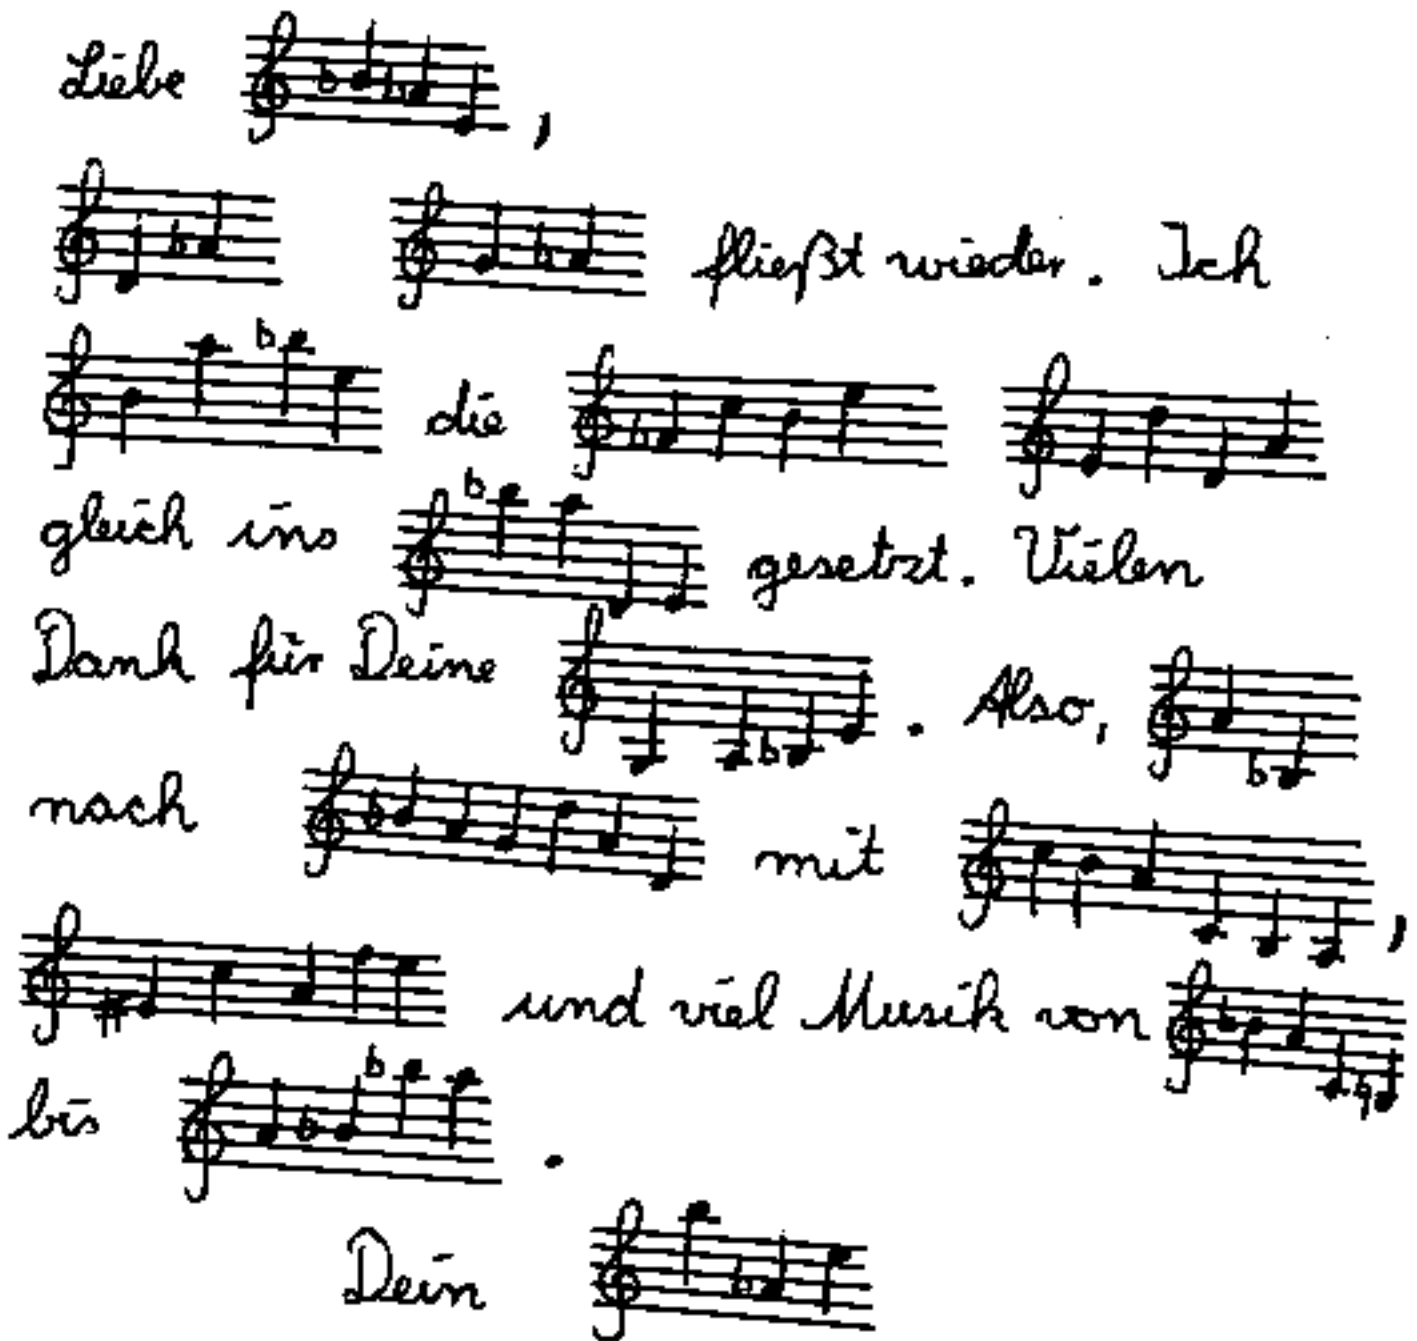 Liebe ,
fließt wieder. Ich
die
gleich ins gesetzt. Vielen
Dank für Deine . Also,
nach mit ,
und viel Musik von
bis .
Dein